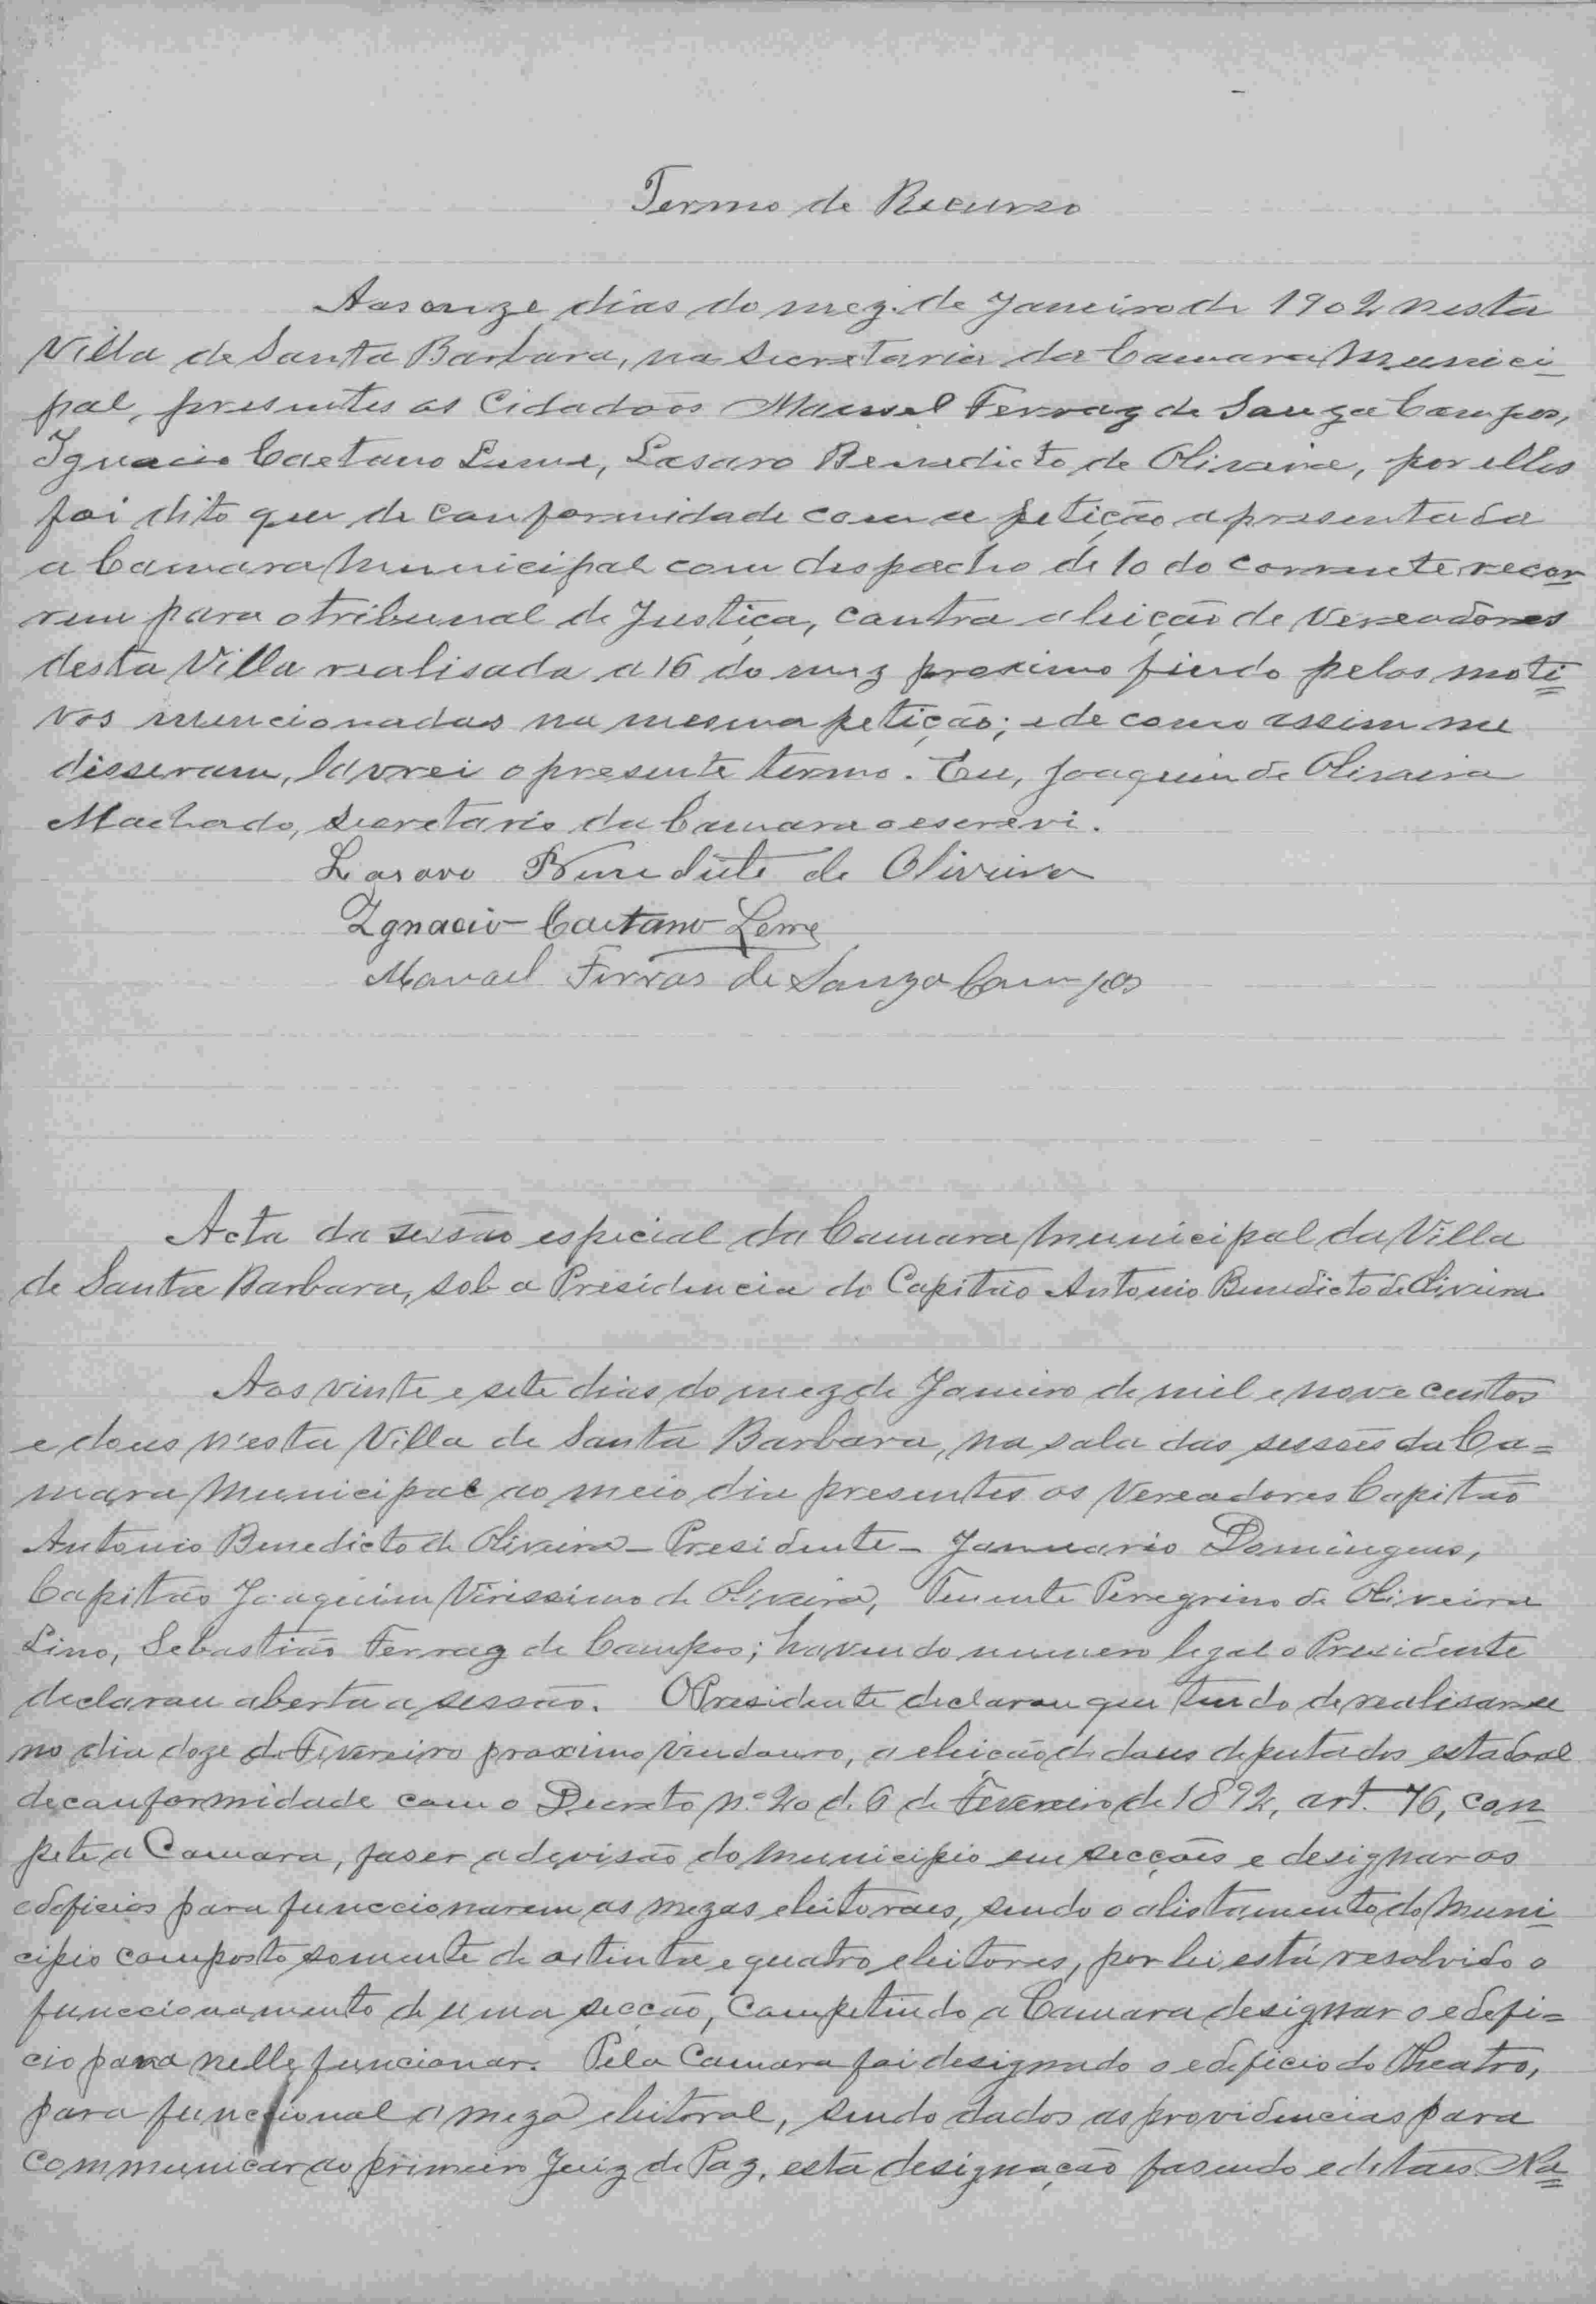 Termo de Recurso
Aos onze dias do mez de Janeiro de 1902 nesta
Villa de Santa Barbara, na Secretaria da Camara Munici-
pal, presentes os Cidadãos Manoel Ferraz de Souza Campos,
Ignacio Caetano Leme, Lasaro Benedicto de Oliveira, por elles
foi dito que de conformidade com a petição apresentada
a Camara Municipal com despacho de 10 do corrente, recor-
rem para o tribunal de Justiça, contra a leição de Vereadores
desta Villa realisada a 16 do mez proximo findo pelos moti-
vos mencionados na mesma petição; e de como assim me
disseram, lavrei o presente termo. Eu, Joaquim de Oliveira
Machado, Secretario da Camara o escrevi.
Lasaro Benedicto de Oliveira
Ignacio Caetano Leme
Manoel Ferras de Souza Campos
Acta da sessão especial da Camara Municipal da Villa
de Santa Barbara, sob a Presidencia do Capitão Antonio Benedicto de Oliveira
Aos vinte e sete dias do mez de Janeiro de mil e nove centos
e dous n'esta Villa de Santa Barbara, na sala das sessões da Ca-
mara Municipal ao meio dia presentes os Vereadores Capitão
Antonio Benedicto de Oliveira - Presidente - Januario Domingues,
Capitão Joaquim Virissimo de Oliveira, Tenente Peregrino de Oliveira
Lino, Sebastião Ferraz de Campos; havendo numero legal o Presidente
declarou aberta a sessão. O Presidente declarou que tendo de realisar-se
no dia doze de Fevereiro proximo vindouro, a eleição de dous deputados estadoal
de conformidade com o Decreto nº 20 de 6 de Fevereiro de 1892, art. 76, com-
pete a Camara, faser a devisão do Municipio em secções e designar os
edeficios para funccionarem as mezas eleitoraes, sendo o alistamento do Muni-
cipio composto somente de oitenta e quatro eleitores, por lei está resolvido o
funccionamento de uma secção, competindo a Camara designar o edefi-
cio para nelle funcionar. Pela Camara foi designado o edeficio do Theatro,
para funccional a meza eleitoral, sendo dados as providencias para
communicar ao primeiro Juiz de Paz, esta designação fasendo editaes. Na